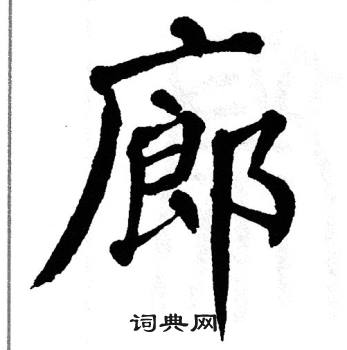 廊
词典网